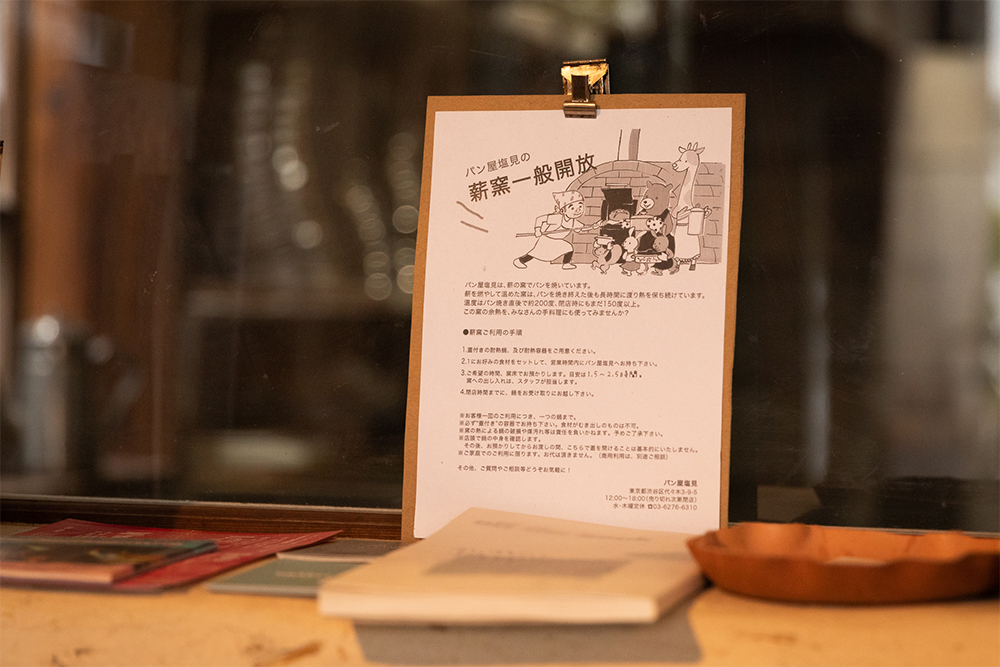 パン屋塩見の
薪窯一般開放
パン屋塩見は、薪の窯でパンを焼いています。
薪を燃やして温めた窯は、パンを焼き終えた後も長時間に渡り熱を保ち続けています。
温度はパン焼き直後で約200度、閉店時にもまだ150度以上。
この窯の余熱を、みなさんの手料理にも使ってみませんか?
●薪窯ご利用の手順
1.蓋付きの耐熱鍋、及び耐熱容器をご用意ください。
2.1にお好みの食材をセットして、営業時間内にパン屋塩見へお持ち下さい。
3.ご希望の時間、窯床でお預かりします。目安は1.5〜2.5時間。
窯への出し入れは、スタッフが担当します。
4.閉店時間までに、鍋をお受け取りにお越し下さい。
※お客様一回のご利用につき、一つの鍋まで。
※必ず"蓋付き"の容器でお持ち下さい。食材がむき出しのものは不可。
※窯の熱による鍋の破損や煤汚れ等は責任を負いかねます。予めご了承下さい。
※店頭で鍋の中身を確認します。
その後、お預かりしてからお渡しの間、こちらで蓋を開けることは基本的にいたしません。
※ご家庭でのご利用に限ります。お代は頂きません。(商用利用は、別途ご相談)
その他、ご質問やご相談等どうぞお気軽に!
パン屋塩見
東京都渋谷区代々木3-9-5
12:00〜18:00(売り切れ次第閉店)
水・木曜定休 ☎03-6276-6310